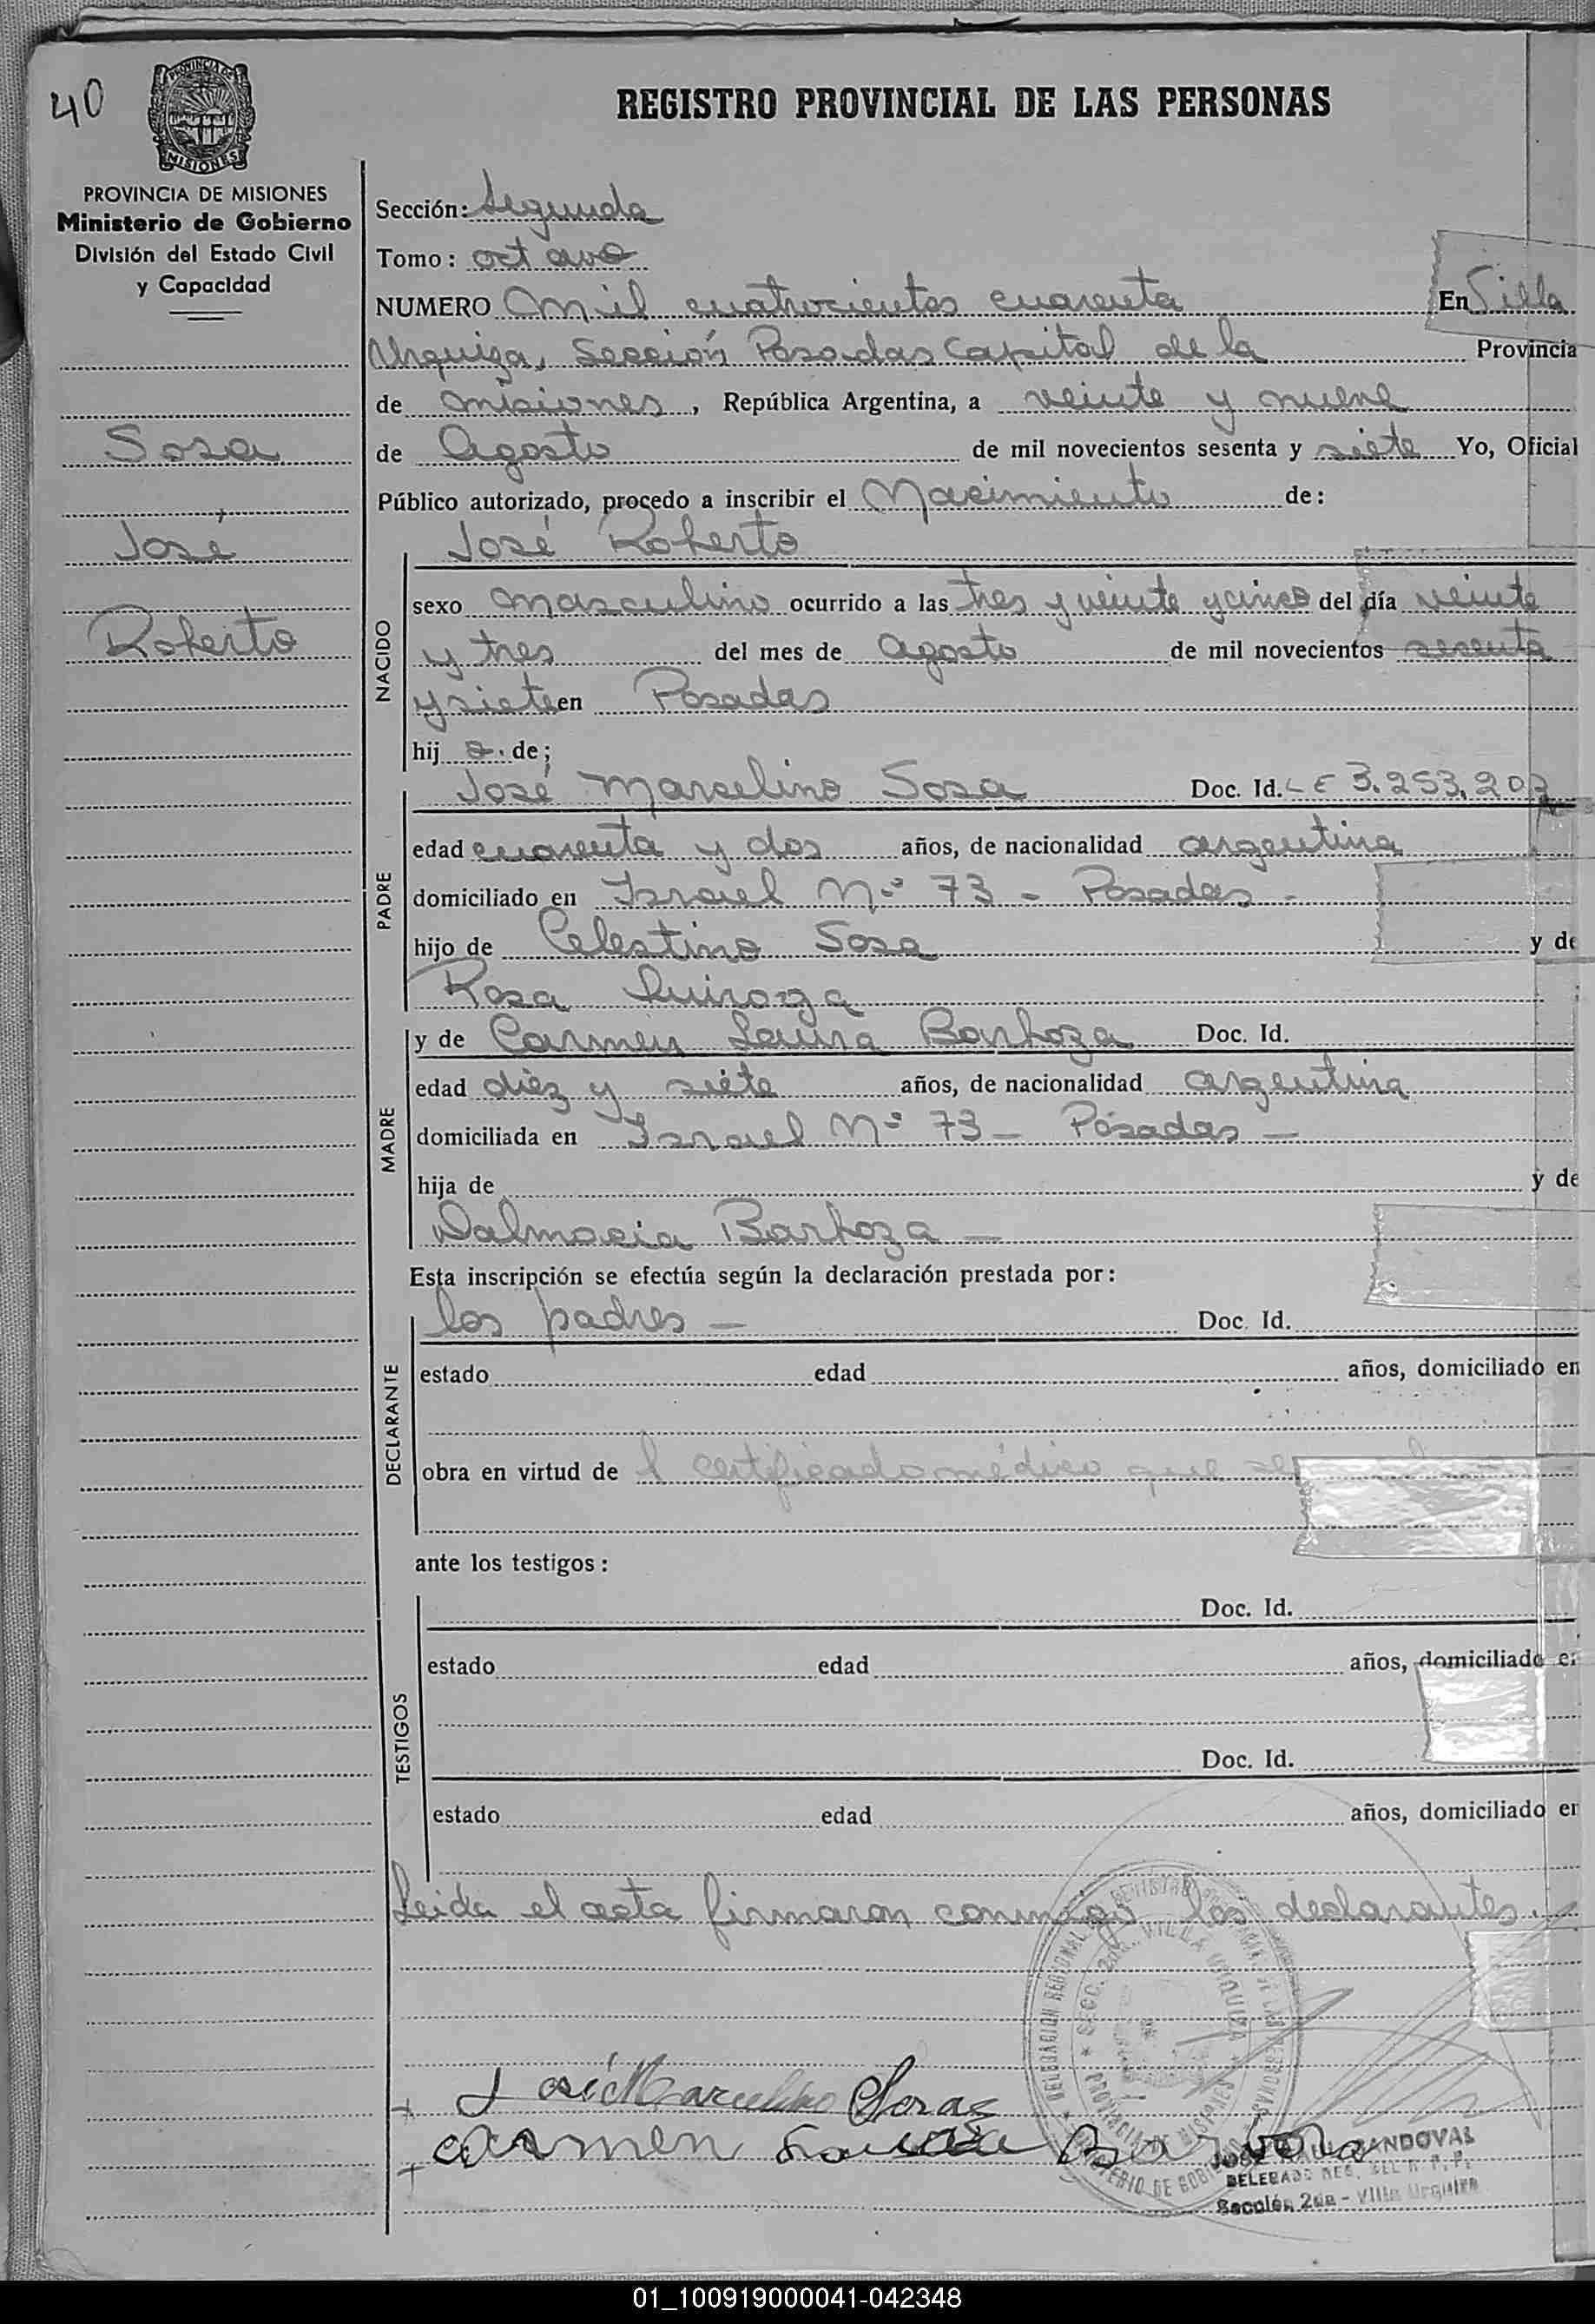 40
PROVINCIA DE
MISIONES
REGISTRO PROVINCIAL DE LAS PERSONAS
PROVINCIA DE MISIONES
Ministerio de Gobierno
División del Estado Civil
y Capacidad
Sosa
José
Roberto
Sección: Segunda
Tomo: octavo
NUMERO mil cuatrocientos cuarenta En Villa
Urquiza, Sección Posadas Capital de la Provincia
de misiones, República Argentina, a veinte y nueve
de Agosto de mil novecientos sesenta y siete Yo, Oficial
Público autorizado, procedo a inscribir el Nacimiento de:
José Roberto
NACIDO
sexo masculino ocurrido a las tres y veinte y cinco del día veinte
y tres del mes de Agosto de mil novecientos sesenta
y siete en Posadas
hij o. de;
José Marcelino Sosa Doc. Id. L E 3.253.203
PADRE
edad cuarenta y dos años, de nacionalidad argentina
domiciliado en Israel Nº 73 - Posadas -
hijo de Celestino Sosa y de
Rosa Quiroga
y de Carmen Laura Barboza Doc. Id.
MADRE
edad diez y siete años, de nacionalidad argentina
domiciliada en Israel Nº 73 - Posadas -
hija de y de
Dalmacia Barboza -
Esta inscripción se efectúa según la declaración prestada por:
los padres - Doc. Id.
DECLARANTE
estado edad años, domiciliado en
obra en virtud de l certificado médico que se
ante los testigos:
Doc. Id.
TESTIGOS
estado edad años, domiciliado en
Doc. Id.
estado edad años, domiciliado en
Leida el acta firmaron conmigo los declarantes.
DELEGACION REGIONAL REGISTRO PROVINCIAL DE LAS PERSONAS
SECC. 2da. VILLA URQUIZA
PROVINCIA DE MISIONES
MINISTERIO DE GOBIERNO
José Marcelino Sosa
carmen Laura Barboza
SANDOVAL
DELEGADO REG. DEL R. P. P.
Sección 2da - Villa Urquiza
01_100919000041-042348